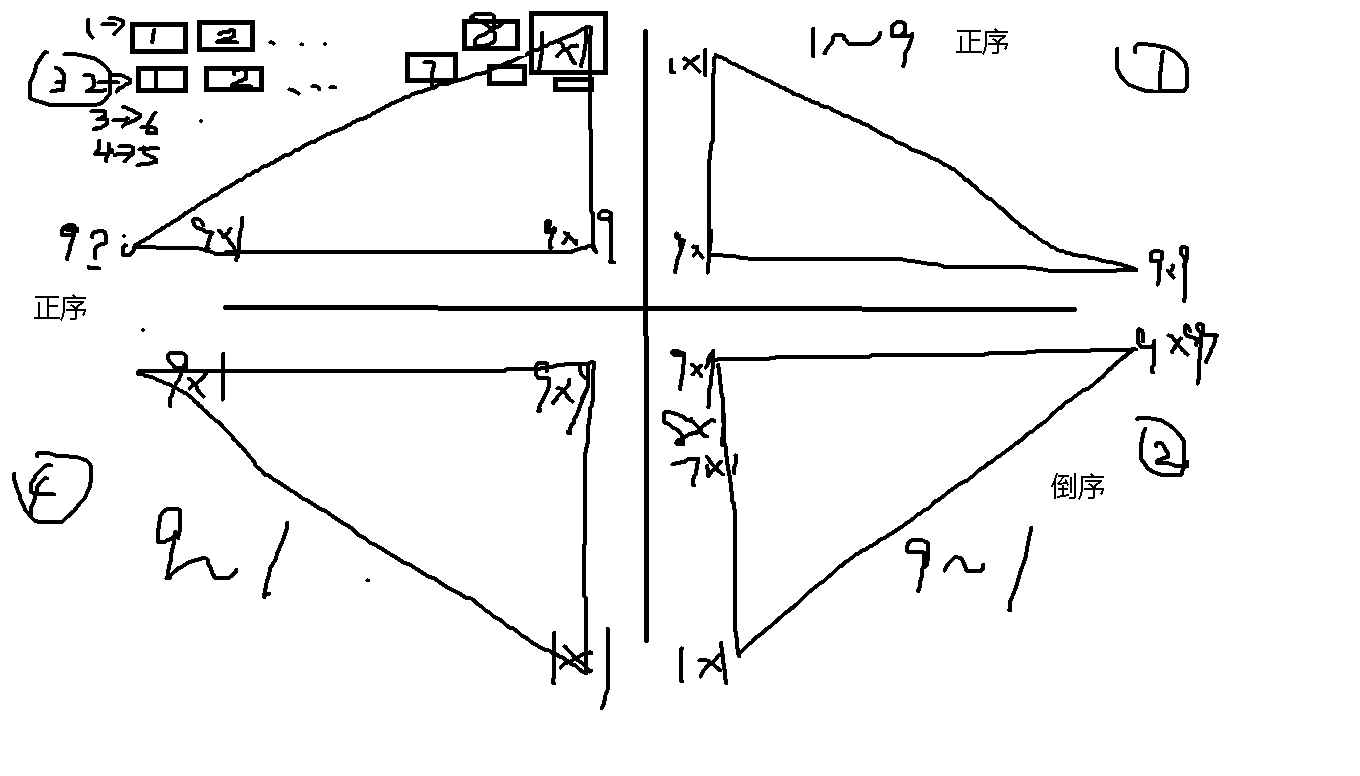 1→ 1 2 . . . 7 8 1x1
③ 2→ 1 2 . . .
3→6
4→5
9 ?
9x1 9x9
正序
1~9 正序 ①
1x1
9x1 9x9
9x1 9x9
9~1
1x1
9x1 9x9
8x
7x1
②
倒序
9~1
1x1